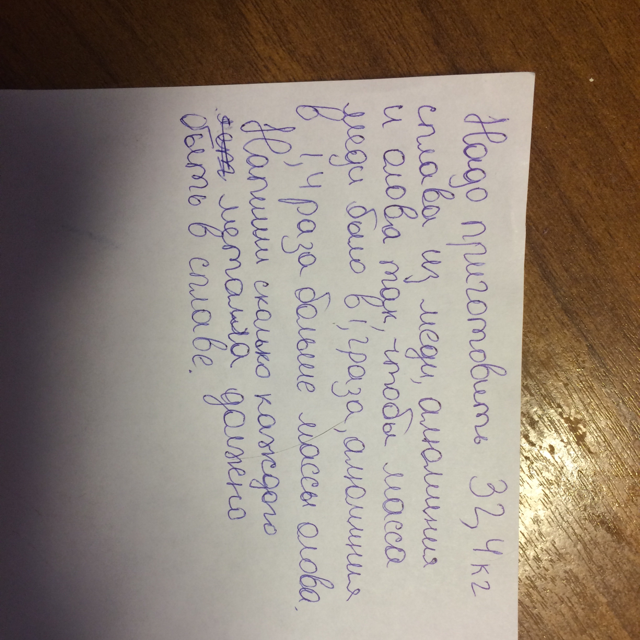 Надо приготовить 32,4 кг
сплава из меди, алюминия
и олова так, чтобы масса
меди было в 1,1 раза, алюминия
в 1,4 раза больше массы олова.
Напиши сколько каждого
металла должено
быть в сплаве.